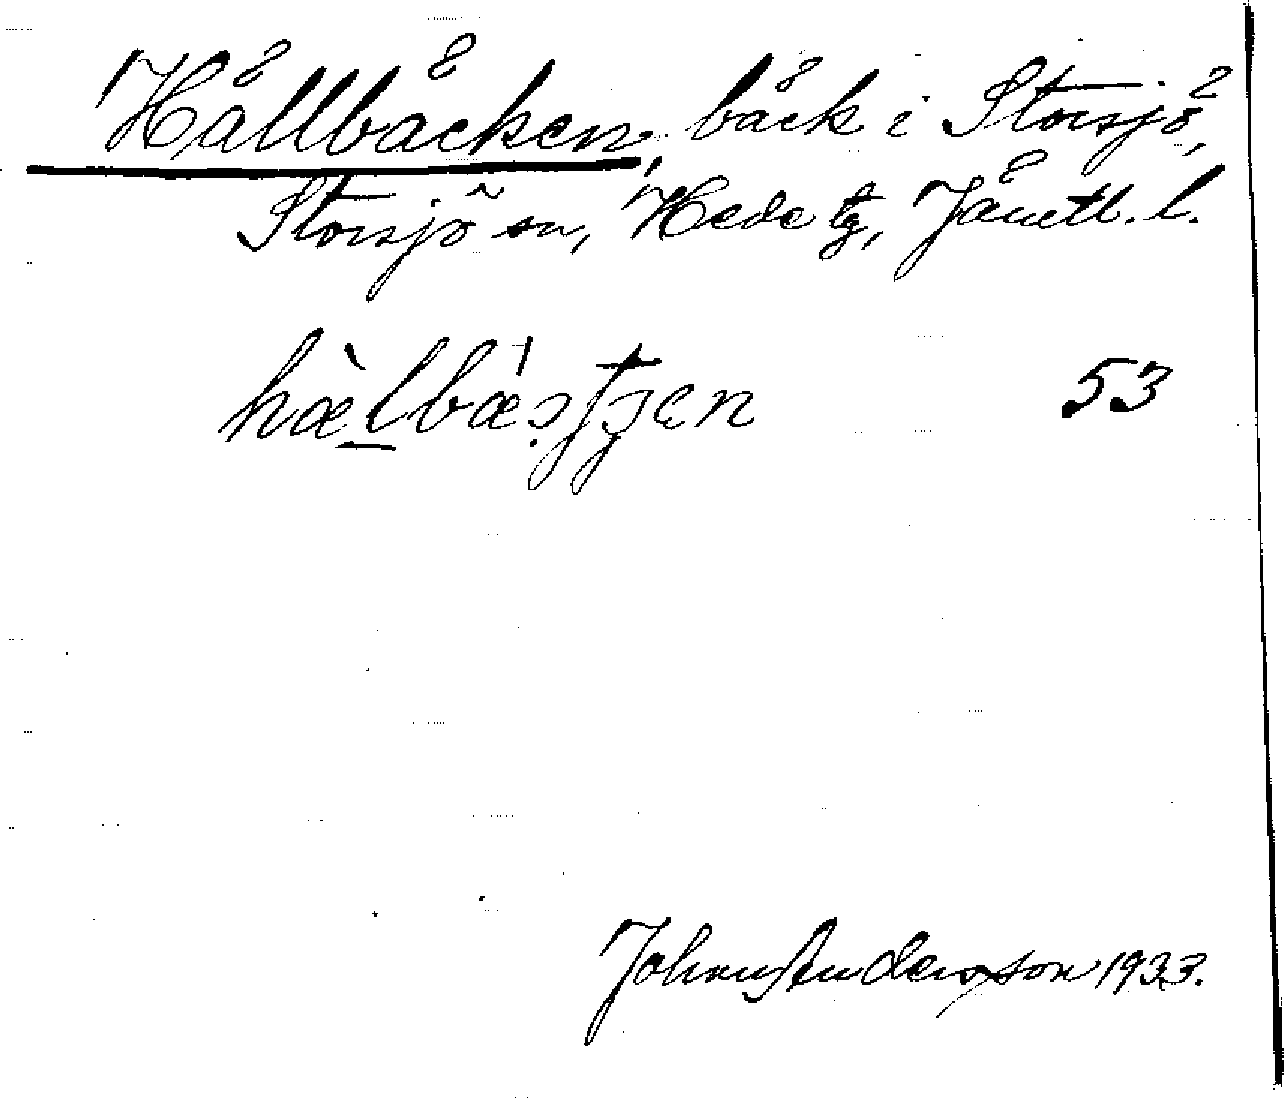 Hällbäcken, bäck i Storsjö,
Storsjö sn, Hede tg, Jämtl. l.
hæ̀lbæ̍ꞔtʒen 53
John Andersson 1933.